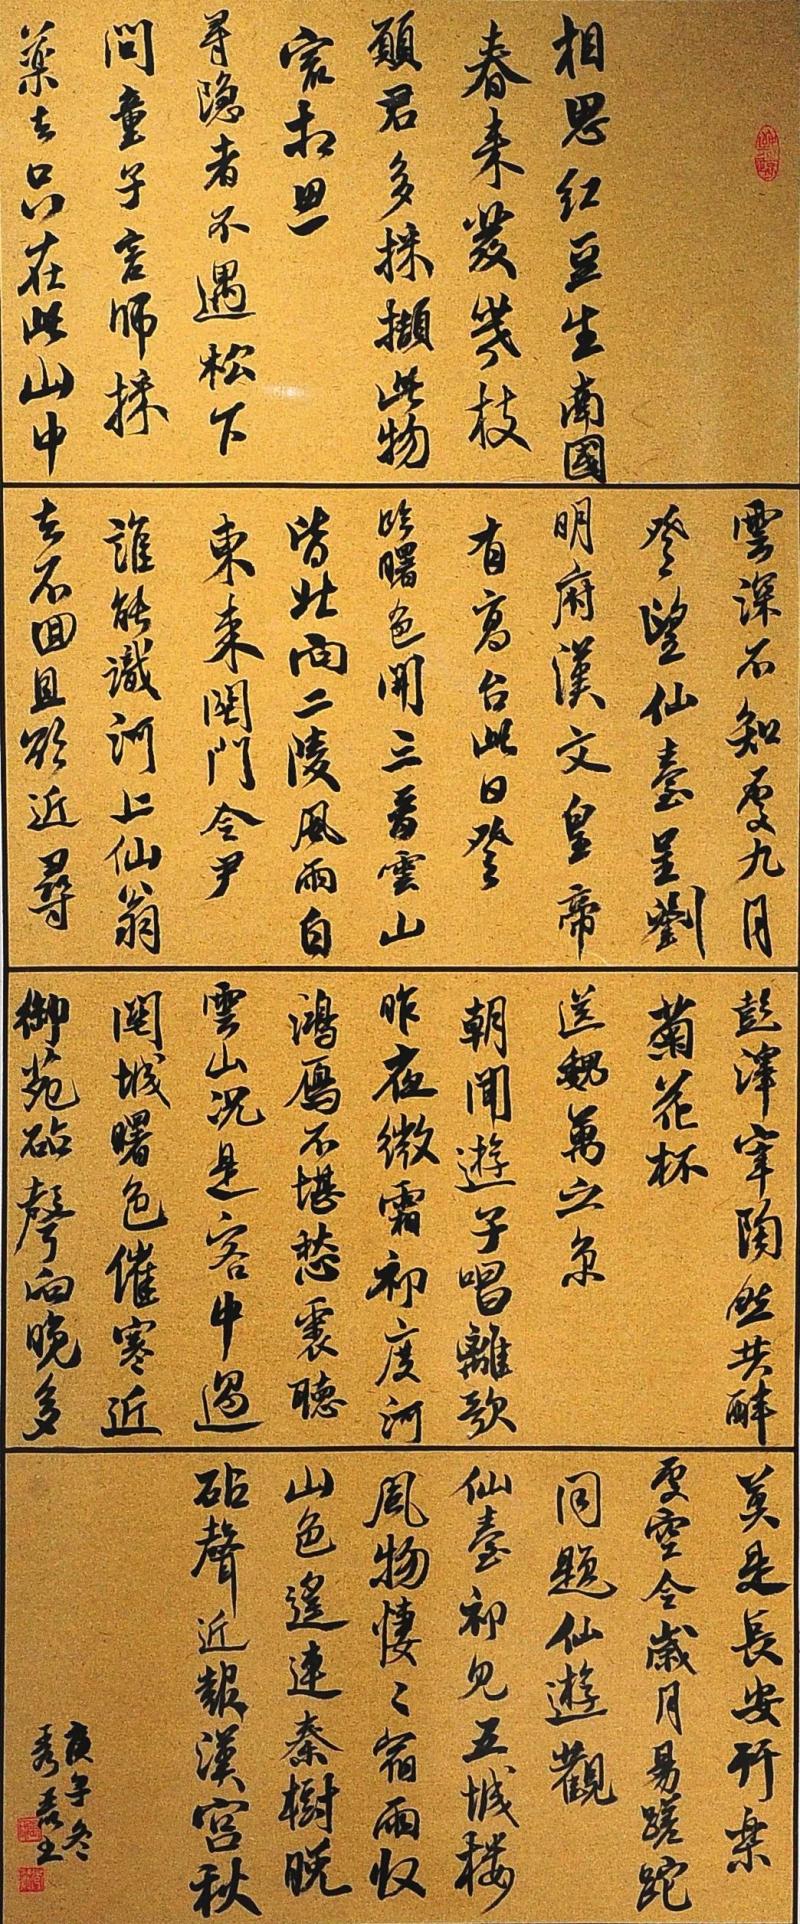 相思红豆生南國
春来發幾枝
願君多採擷此物
最相思
尋隐者不遇松下
問童子言師採
藥去只在此山中
雲深不知處九月
登望仙臺呈劉
明府漢文皇帝
有高台此日登
臨曙色開三晋雲山
皆北向二陵風雨自
東来関門令尹
誰能識河上仙翁
去不回且欲近尋
彭澤宰陶然共醉
菊花杯
送魏萬之京
朝聞遊子唱離歌
昨夜微霜初度河
鴻雁不堪愁裏聽
雲山况是客中過
関城曙色催寒近
御苑砧聲向晚多
莫是長安行樂
處空令歲月易蹉跎
同題仙遊觀
仙臺初見五城楼
風物悽〻宿雨收
山色遙連秦樹晚
砧聲近報漢宫秋
庚子冬